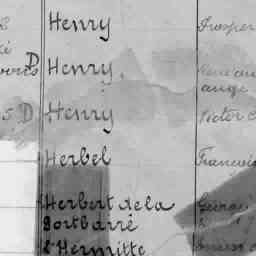 Henry Prosper
Henry
ange
5 D Henry Victor
Herbel François
Herbert de la George
Sortbarré
L'Hermitte